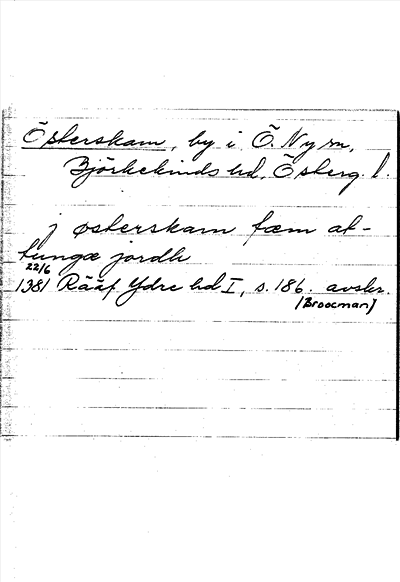 Österskam, by i Ö. Ny sn,
Björkekinds hd, Österg. l.
j østerskam fæm at-
tungæ jordh
22/6
1381 Rääf Ydre hd I, s. 186. avskr.
(Broocman)